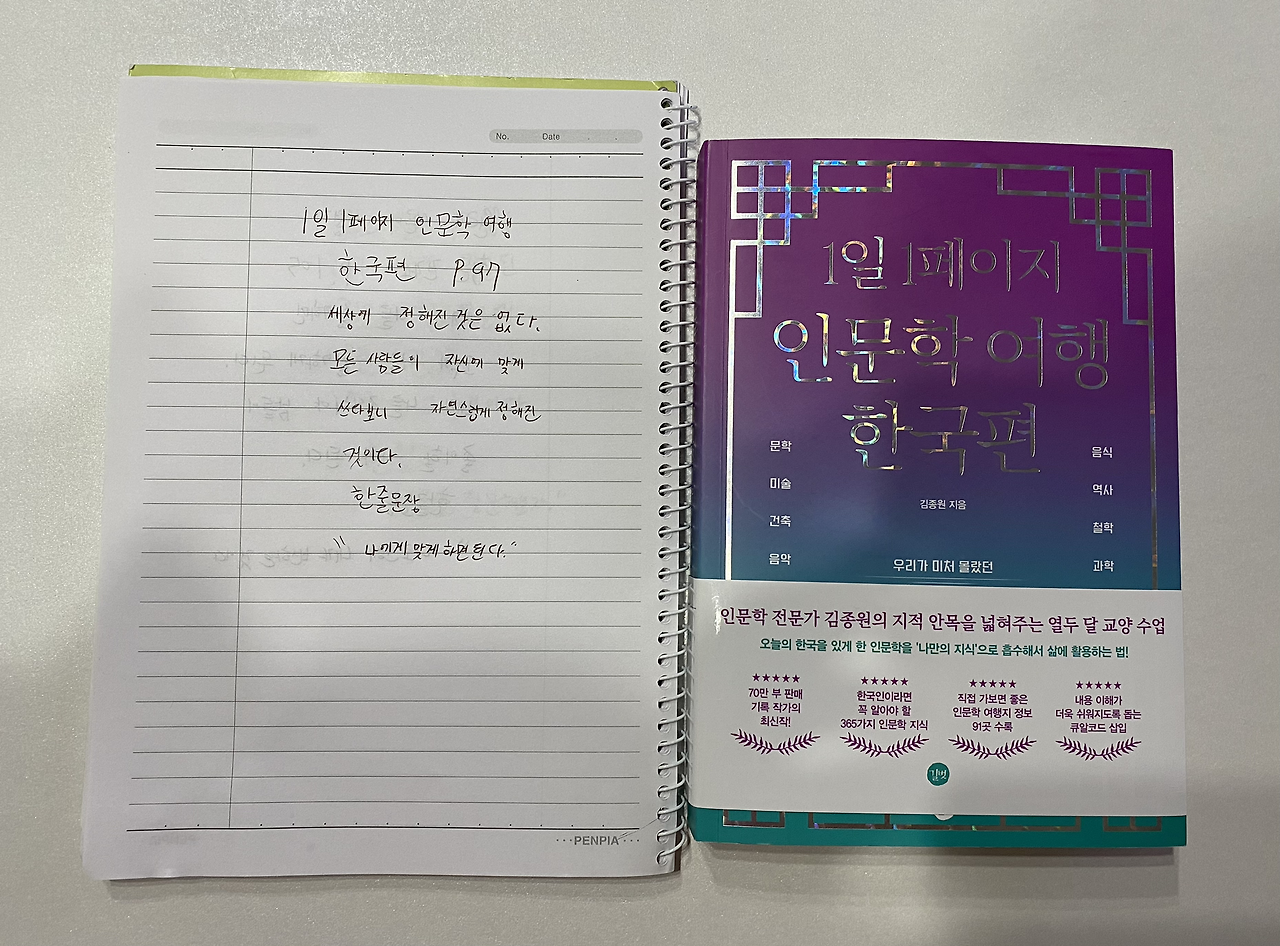 No. Date
1일 1페이지 인문학 여행
한국편 P.97
세상에 정해진 것은 없다.
모든 사람들이 자신에 맞게
쓰다보니 자연스럽게 정해진
것이다.
한줄문장
"나에게 맞게 하면 된다."
PENPIA
1일 1페이지
인문학 여행
한국편
문학
미술
건축
음악
음식
역사
철학
과학
김종원 지음
우리가 미처 몰랐던
인문학 전문가 김종원의 지적 안목을 넓혀주는 열두 달 교양 수업
오늘의 한국을 있게 한 인문학을 '나만의 지식'으로 흡수해서 삶에 활용하는 법!
70만 부 판매
기록 작가의
최신작!
한국인이라면
꼭 알아야 할
365가지 인문학 지식
직접 가보면 좋은
인문학 여행지 정보
91곳 수록
내용 이해가
더욱 쉬워지도록 돕는
큐알코드 삽입
길벗